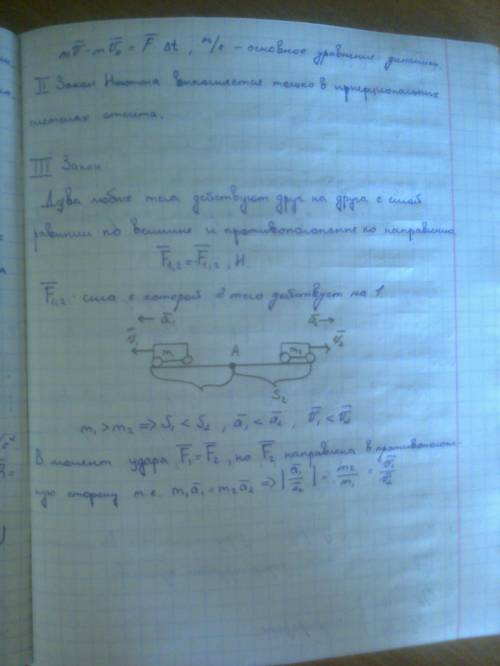 mv̅ - mv̅₀ = F̅ Δt, м/с - основное уравнение динамики
II Закон Ньютона выполняется только в инерциональных
системах отсчета.
III Закон
Два любые тела действуют друг на друга с силой
равными по величине и противоположные по направлению
F̅₁,₂ = F̅₁,₂, Н
F̅₁,₂ - сила с которой 2 тело действует на 1
← a̅₁ a̅₂ →
v̅₁ m₁ A m₂ v̅₂
S₂
m₁ > m₂ => S₁ < S₂, a̅₁ < a̅₂, v̅₁ < v̅₂
В момент удара F̅₁ = F̅₂, но F̅₂ направлена в противополож-
ную сторону т.е. m₁a̅₁ = m₂a̅₂ => |a̅₁/a̅₂| = m₂/m₁ = v̅₁/v̅₂